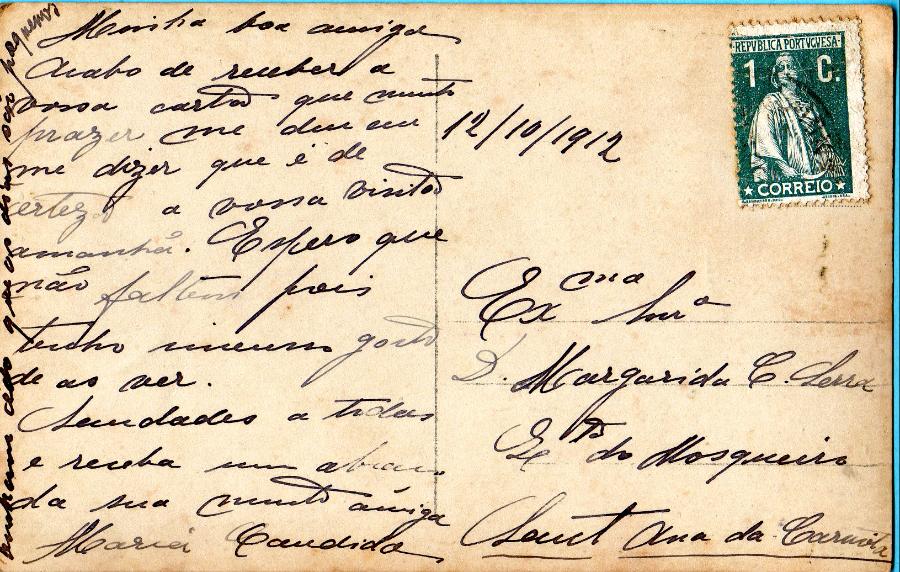 Minha boa amiga
Acabo de receber a
vossa carta que muito
prazer me deu em
me dizer que é de
certeza a vossa visita
amanhã. Espero que
não faltem pois
tenho imenso gosto
de as ver.
Saudades a todas
e receba um abraço
da sua muito amiga
Maria Candida
12/10/1912
REPUBLICA PORTUGUESA
1 C.
CORREIO
Exma Snra
D. Margarida C. Serra
do Mosqueiro
Sant Ana da Carnota